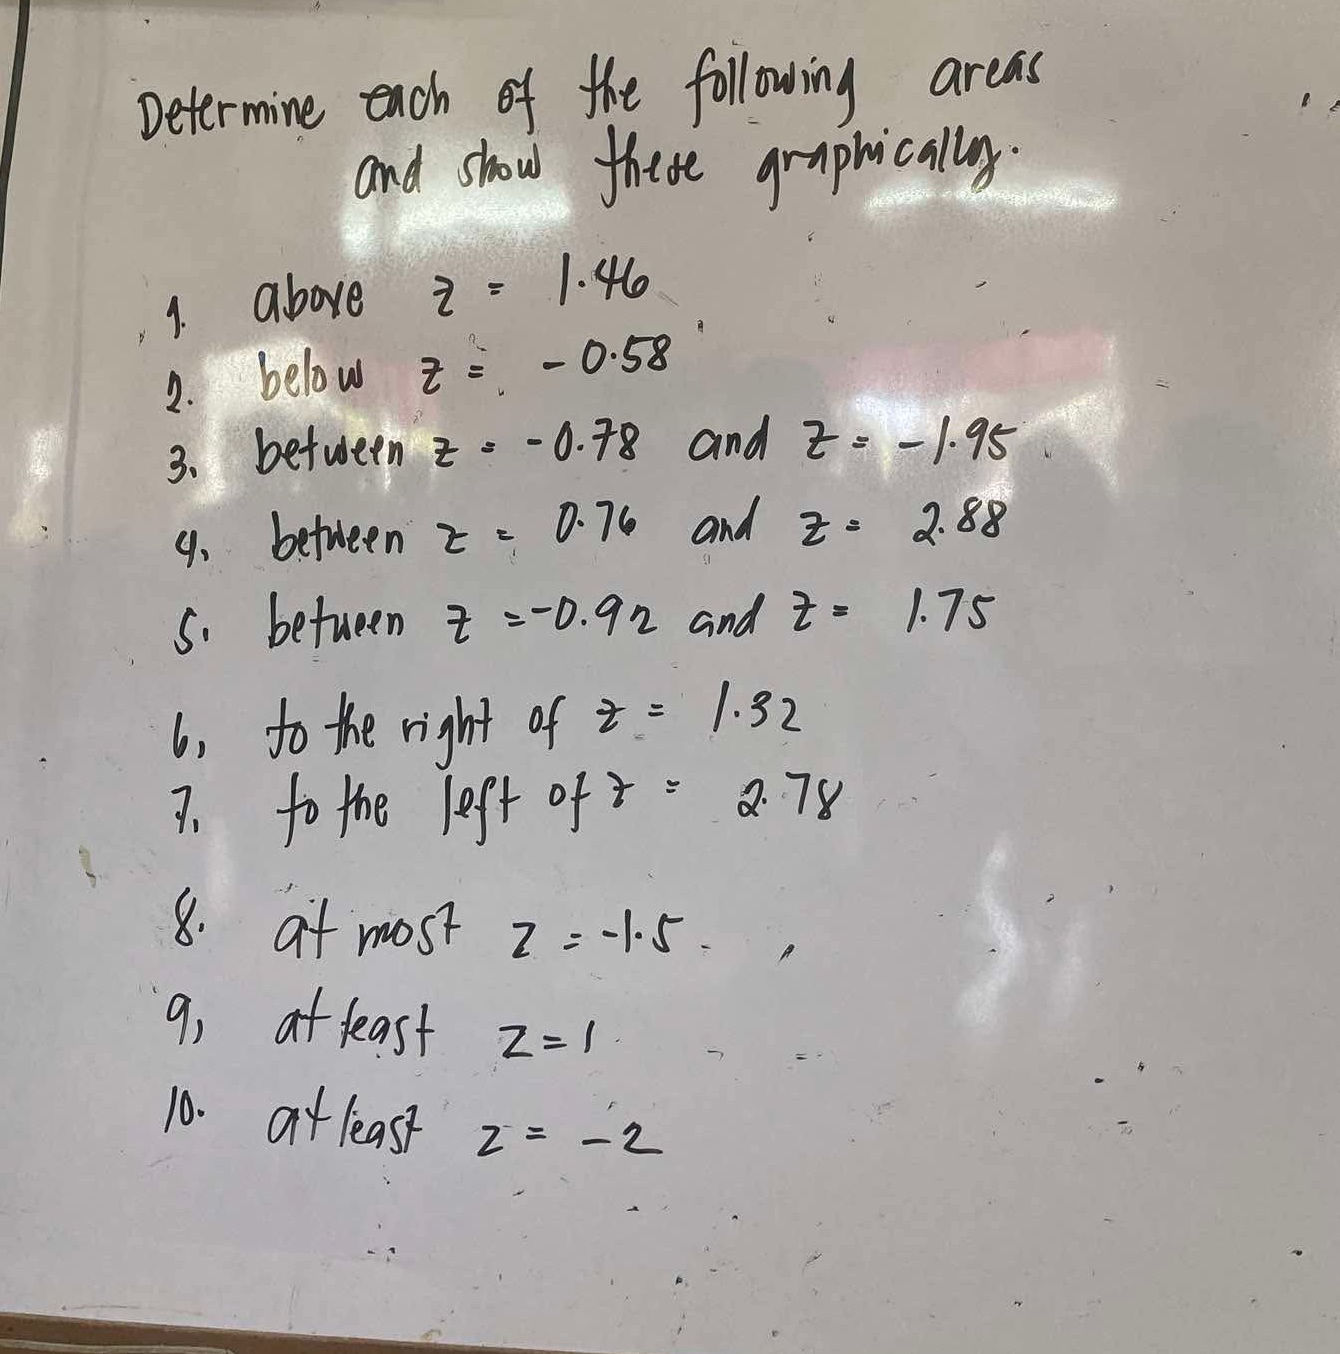 Determine each of the following areas
and show these graphically.
1. above z = 1.46
2. below z = -0.58
3. between z = -0.78 and z = -1.95
4. between z = 0.76 and z = 2.88
5. between z = -0.92 and z = 1.75
6. to the right of z = 1.32
7. to the left of z = 2.78
8. at most z = -1.5
9. at least z = 1
10. at least z = -2